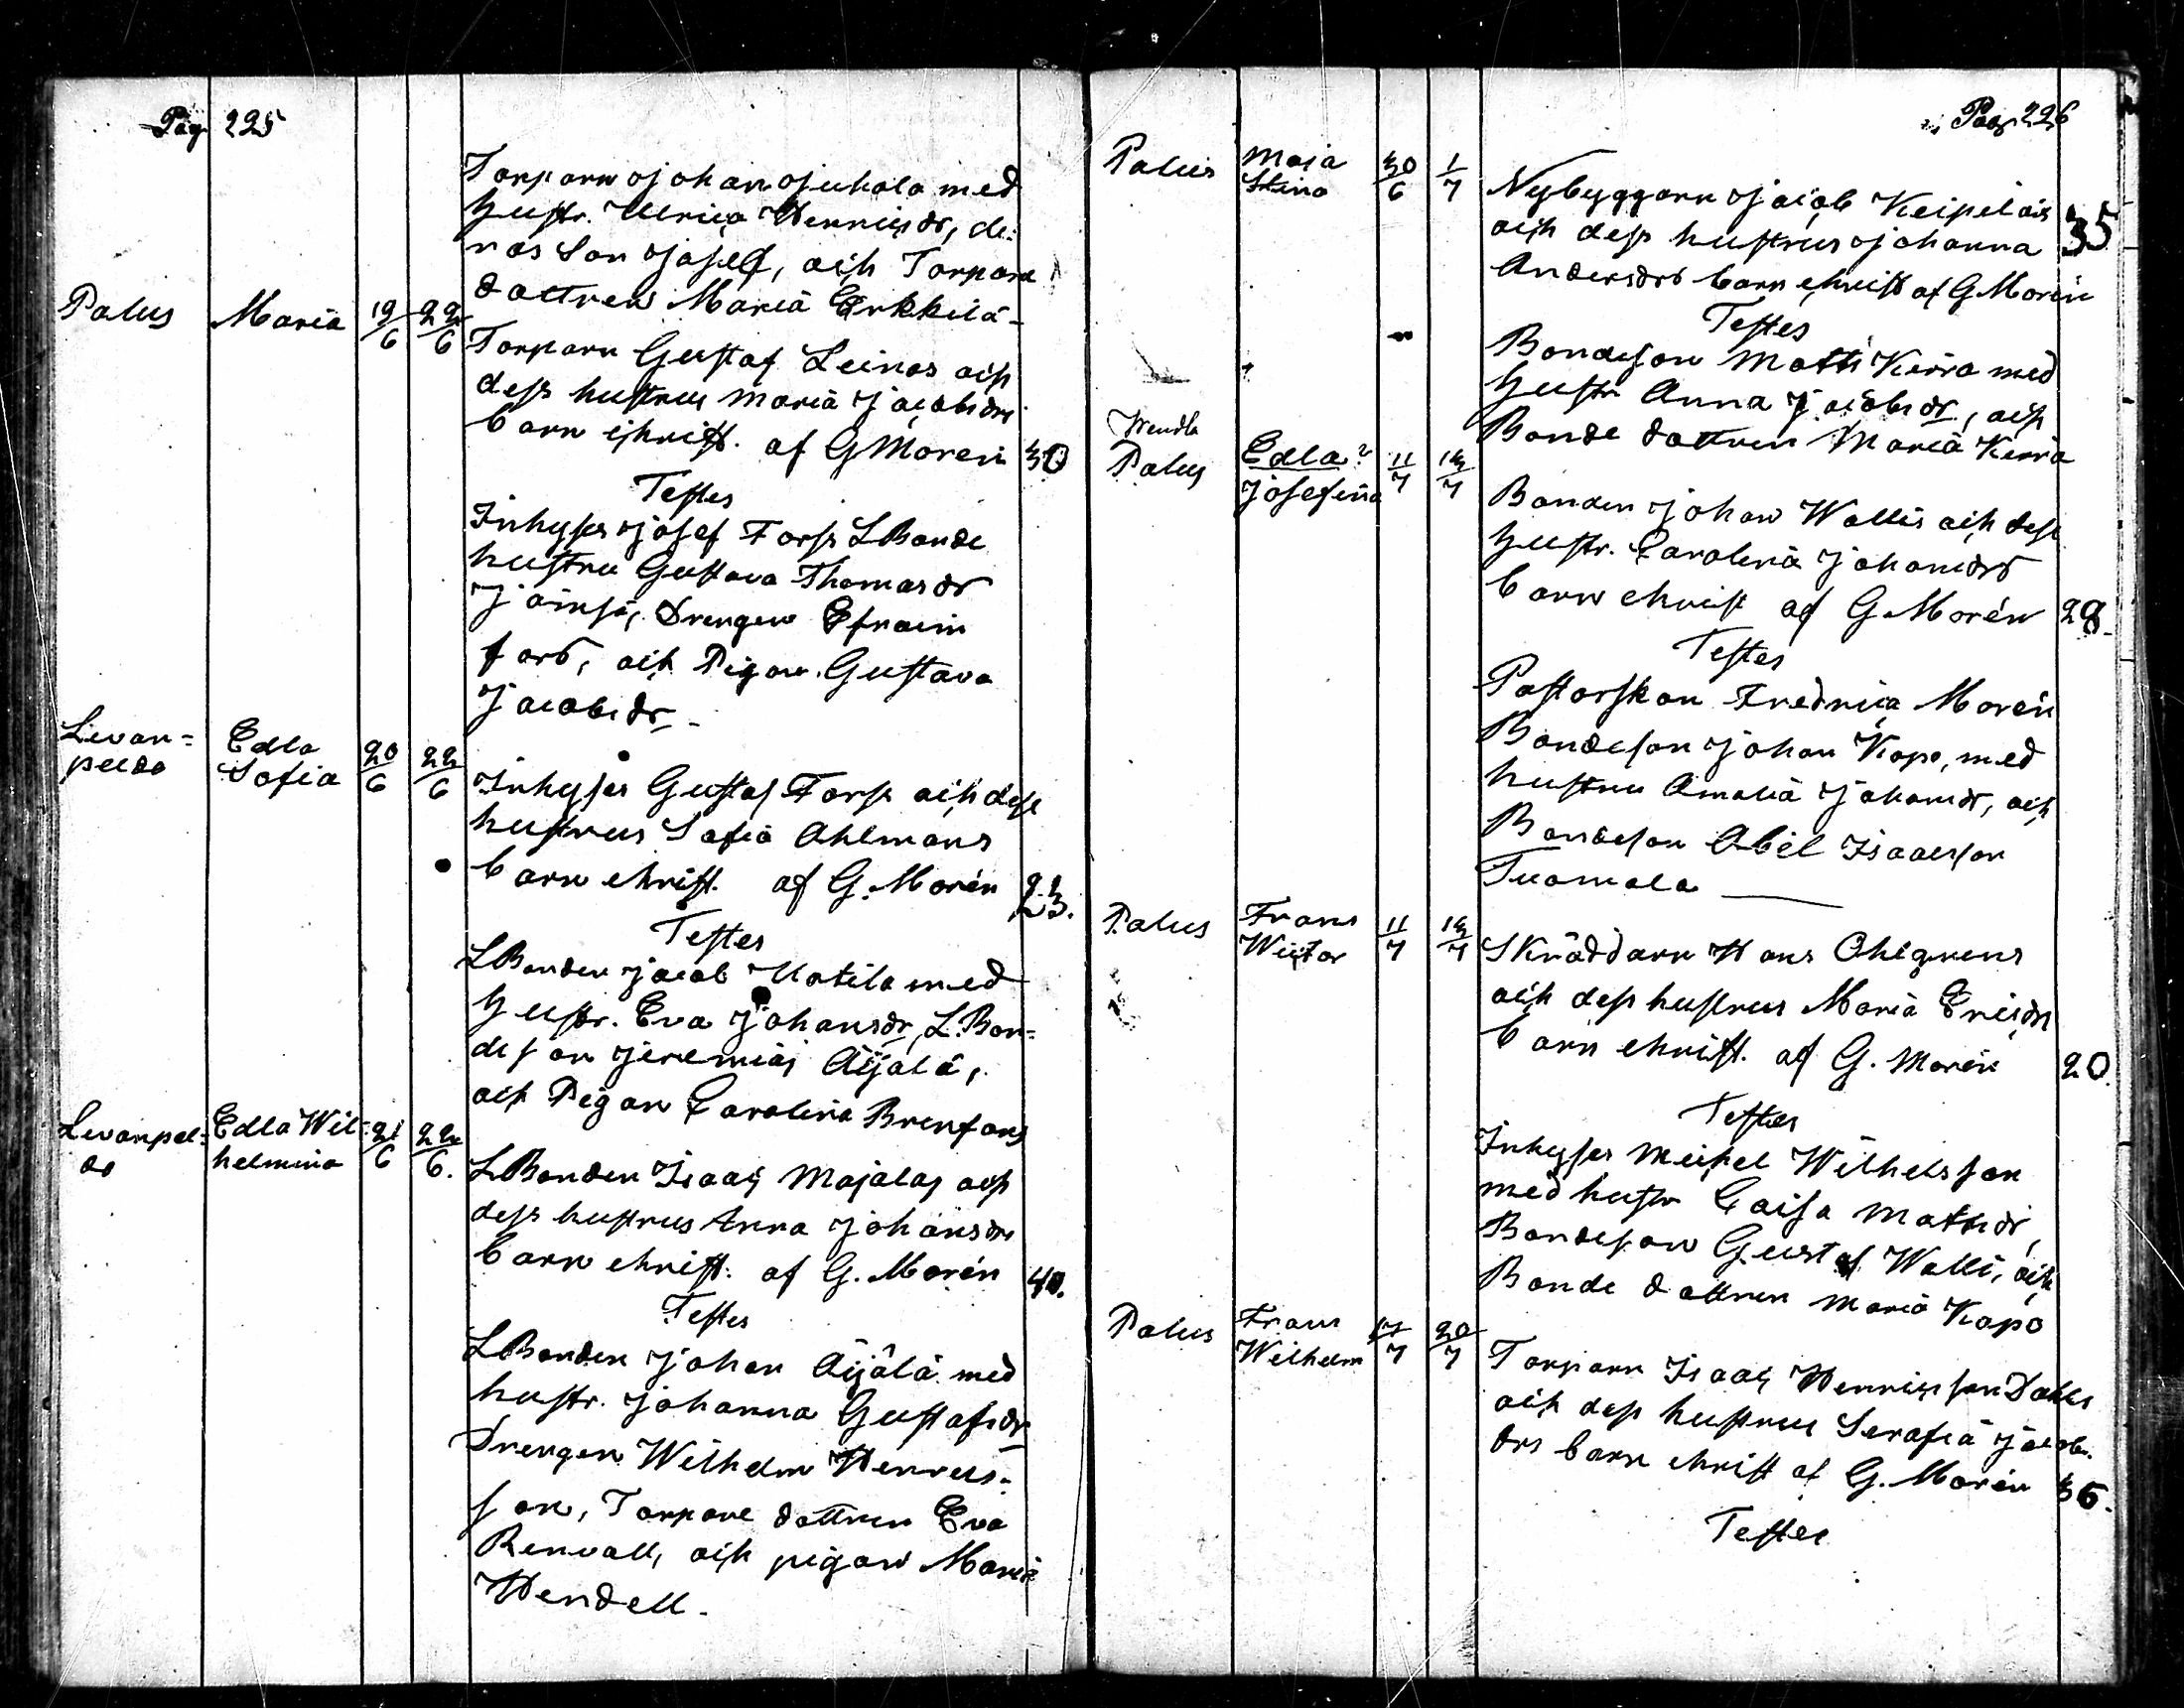 Pag 225
Torparn Johan Juhola med
hustr. Ulrica Henricsdr, de-
ras Son Josef, och Torpare
dottren Maria Erkkilä -
Palus Maria 19/6 22/6 Torparn Gustaf Leinos och
dess hustrus Maria Jacobsdrs
barn christ. af G Morén 30
Testes
Inhyses Josef Forss LBonde
hustru Gustava Thomasdr
Drengen Efraim
Fors, och Pigan Gustava
Jacobsdr -
Levan=
pelda Edla
Sofia 20/6 22/6 Inhyses Gustaf Forss och dess
hustrus Sofia Ahlmans
barn christ. af G. Morén 23.
Testes
LBonden Jacob Uotila med
hustr. Eva Johansdr, L.Bon=
deson Jeremias Äijälä,
och Pigan Carolina Brenfors
Levanpel=
do Edla Wil=
helmina 21/6 22/6. LBonden Isaac Majalas och
dess hustrus Anna Johansdrs
barn christ. af G. Morén 40.
Testes
LBonden Johan Äijälä med
hustr. Johanna Gustafsdr
Drengen Wilhelm Henrics=
son, Torpare dottren Eva
Renvall, och pigan Maria
Wendell.
Pag 226
Palus Maja
Stina 30/6 1/7 Nybyggarn Jacob Keipiläs
och dess hustrus Johanna 35
Andersdrs barn christ af G Morén
Testes
Bondeson Matti Kerra med
hustr Anna Jacobsdr, och
Bonde dottren Maria Kerra
Wendla
Palus Edla?
Josefina 11/7 13/7 Bonden Johan Wallis och dess
hustr. Carolina Johansdrs
barn christ af G. Morén 28.
Testes
Pastorskan Fredrica Morén
Bondeson Johan Kapo, med
hustru Amalia Johansdr, och
Bondeson Abel Isaacsson
Tuomala
Palus Frans
Wictor 11/7 13/7 Skräddarn Hans Ohlgrens
och dess hustrus Maria Ericsdrs
barn christ. af G. Morén 20.
Testes
Inhyses Michel Wilhelsson
med hustr Caisa Mattsdr,
Bondeson Gustaf Walli, och
Bonde dottren Maria Kapo
Palus Frans
Wilhelm 17/7 20/7 Torparn Isaac Henricsson Dahls
och dess hustrus Serafia Jacobs=
drs barn christ af G. Morén 36.
Testes